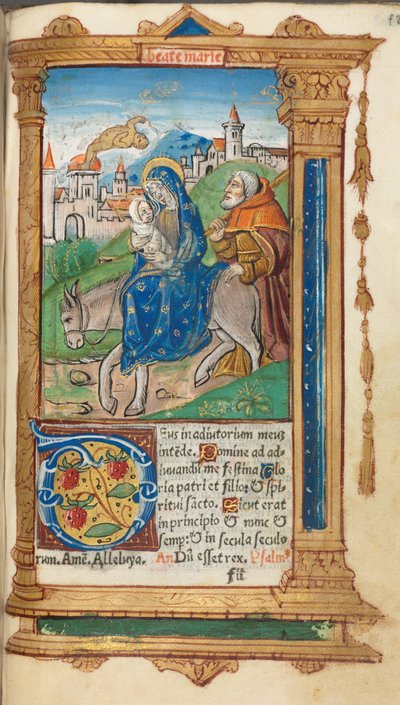 beate marie
Eus in adiutorium meuȝ
intēde. Domine ad ad⸗
iuuandū me festina. Glo
ria patri et filio: & spi
ritui sācto. Sicut erat
in principio & nunc &
semp: & in secula seculo
rum. Amē. Alleluya. An Dū esset rex. Psalmꝰ